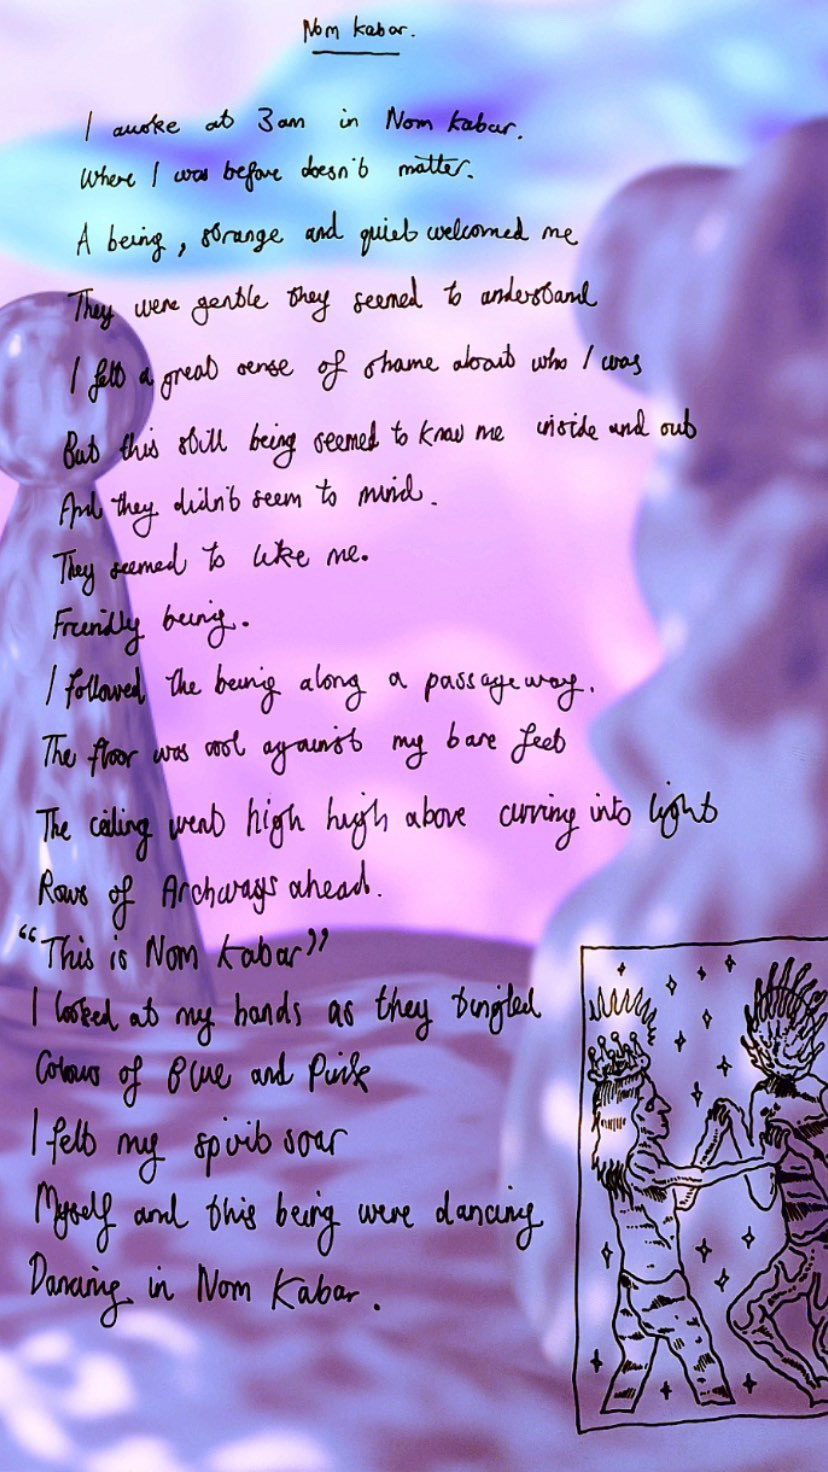 Nom Kabar.
I awoke at 3am in Nom Kabar.
Where I was before doesn't matter.
A being, strange and quiet welcomed me
They were gentle they seemed to understand
I felt a great sense of shame about who I was
But this still being seemed to know me inside and out
And they didn't seem to mind.
They seemed to like me.
Friendly being.
I followed the being along a passageway.
The floor was cool against my bare feet
The ceiling went high high above curving into light
Rows of Archways ahead.
"This is Nom Kabar"
I looked at my hands as they tingled
Colours of Blue and Pink
I felt my spirit soar
Myself and this being were dancing
Dancing in Nom Kabar.